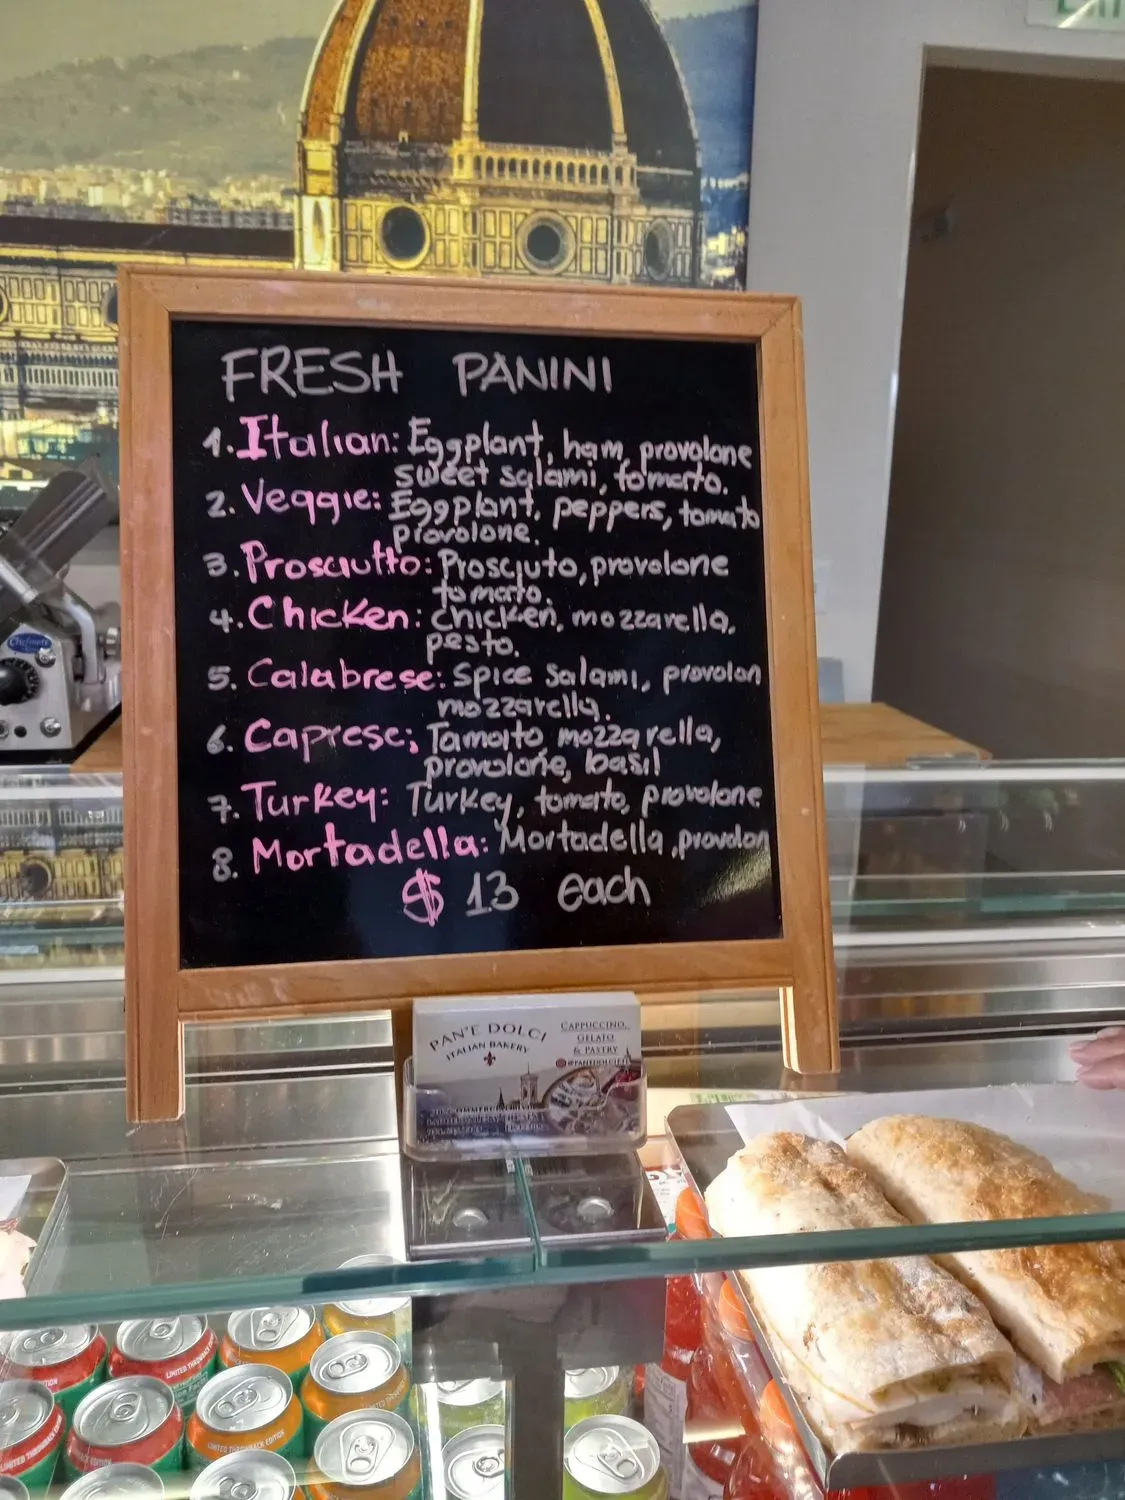 FRESH PANINI
1. Italian: Eggplant, ham, provolone
sweet salami, tomato.
2. Veggie: Eggplant, peppers, tomato
provolone.
3. Prosciutto: Prosciuto, provolone
tomato.
4. Chicken: Chicken, mozzarella,
pesto.
5. Calabrese: Spice Salami, provolon
mozzarella.
6. Caprese; Tamoto mozzarella,
provolone, basil
7. Turkey: Turkey, tomato, provolone
8. Mortadella: Mortadella, provolon
$ 13 each
PAN'E DOLCI
ITALIAN BAKERY
CAPPUCCINO,
GELATO
& PASTRY
LIMITED THROWBACK EDITION